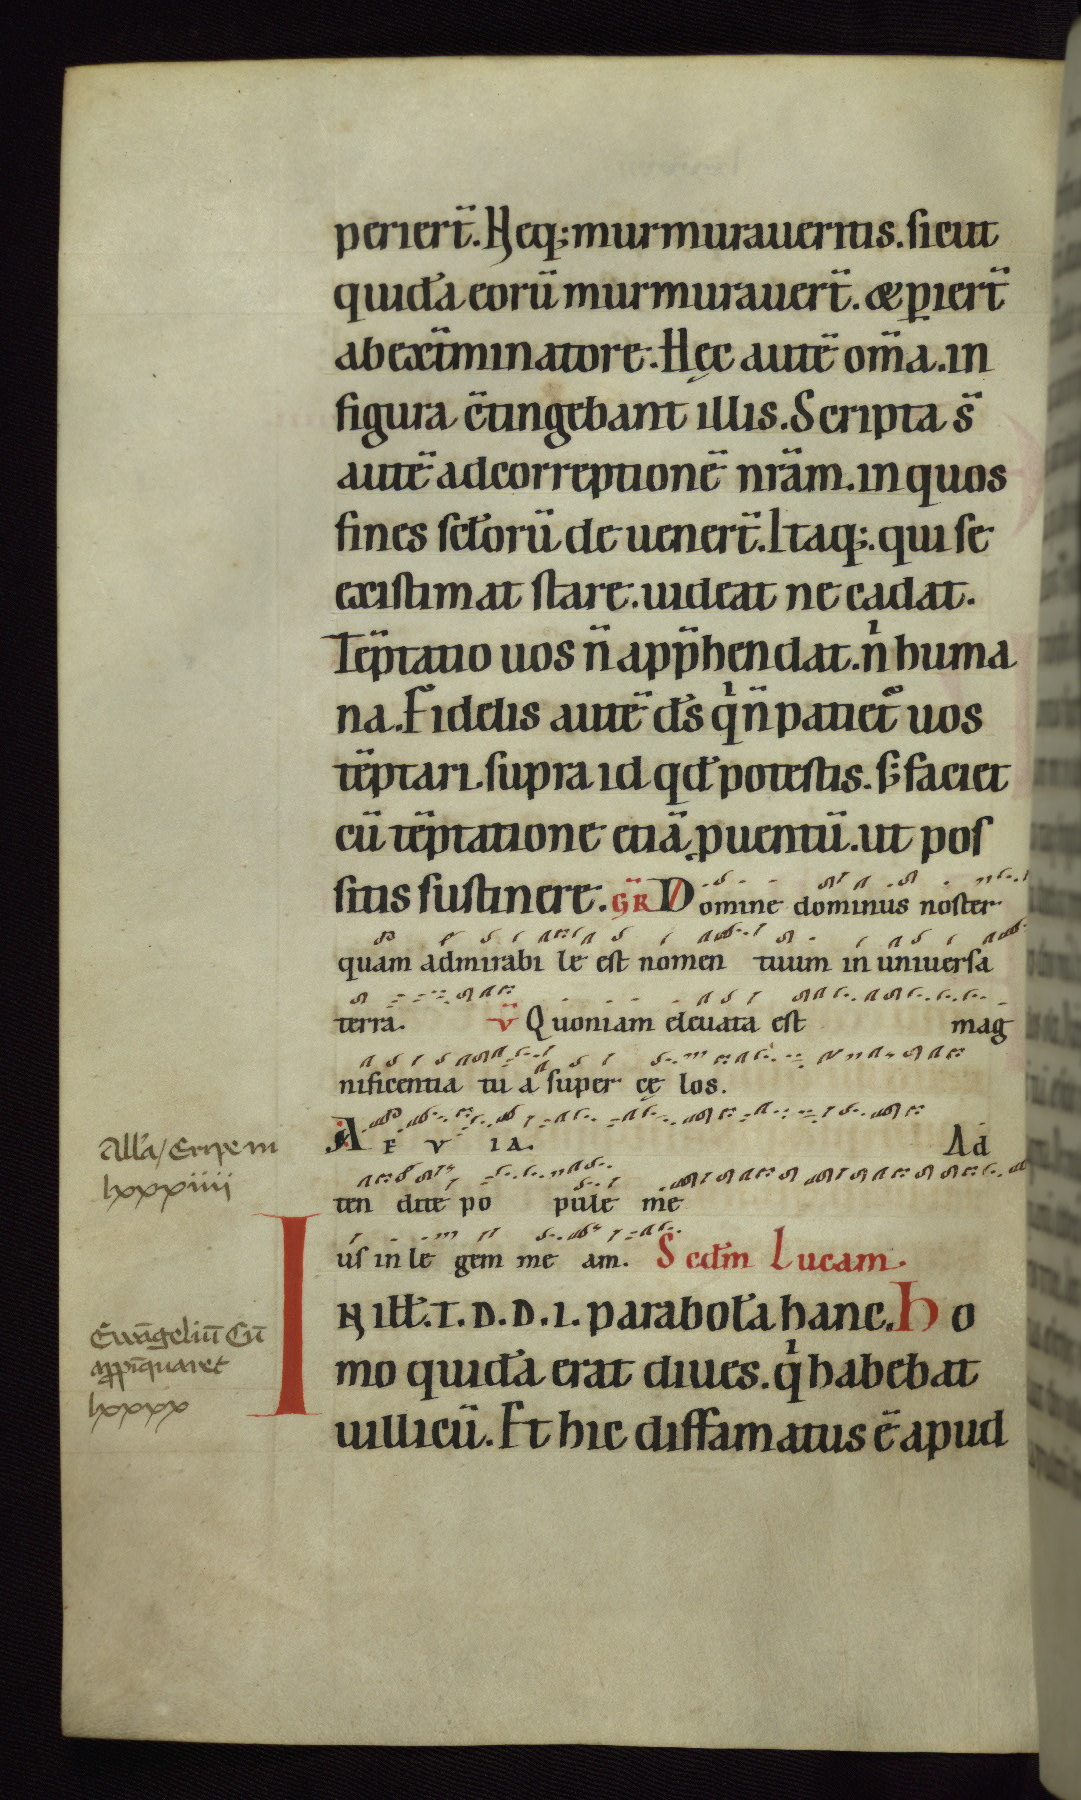 perierт̄. Neq; murmuraueritis. sicut
quidā eorū murmurauerт̄. & p̱ierт̄
ab ext̄minatore. Hęc autē om̄a. in
figura c̄tingebant illis. Scripta s̄
autē ad correptionē nr̄am. in quos
fines sc̄torū deuenert̄. Itaq;. qui se
existimat stare. uideat ne cadat.
Tēptatio uos n̄ app̄hendat. nⁱ huma
na. Fidelis autē d̄s qⁱ n̄ patiet᷑ uos
tēptari. supra id qđ potestis. s; faciet
cū tēptatione etiā ꝓuentū. ut pos
sitis sustinere. GR̄ Domine dominus noster
quam admirabi le est nomen tuum in uniuersa
terra. v̄ Quoniam eleuata est mag
nificentia tu a super cę los.
A E V IA. Ad
ten dite po pule me
us in le gem me am. Scđm Lucam.
Alła / Eripe m
lxxxiiii
IN iłł. T. D. D. I. parabołā hanc. Ho
mo quidā erat diues. qⁱ habebat
uillicū. Et hic diffamatus ē apud
Euāgeliū Cū
app̄iquaret
lxxxx